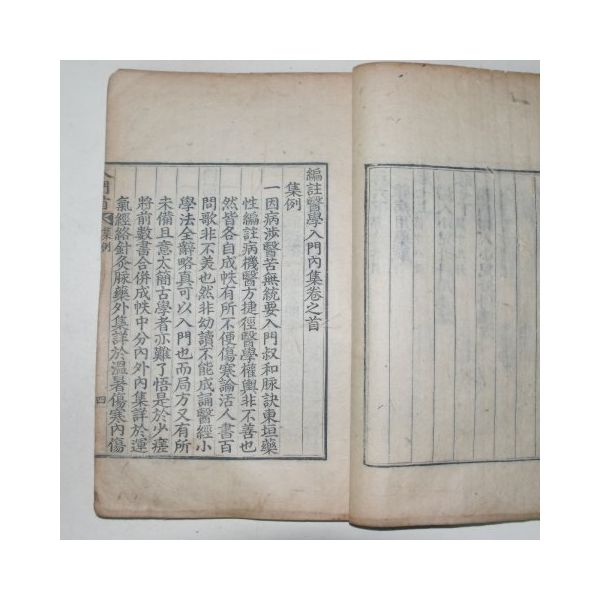 編註醫學入門內集卷之首
集例
一因病涉醫苦無統要入門叔和脉訣東垣藥
性編註病機醫方捷徑醫學權輿非不善也
然皆各自成帙有所不便傷寒論活人書百
問歌非不美也然非幼讀不能成誦醫經小
學法全辭略真可以入門也而局方又有所
未備且意太簡古學者亦難了悟是於少瘥
將前數書合併成帙中分內外內集詳於運
氣經絡針灸脉藥外集詳於溫暑傷寒內傷
入門首
集例
四